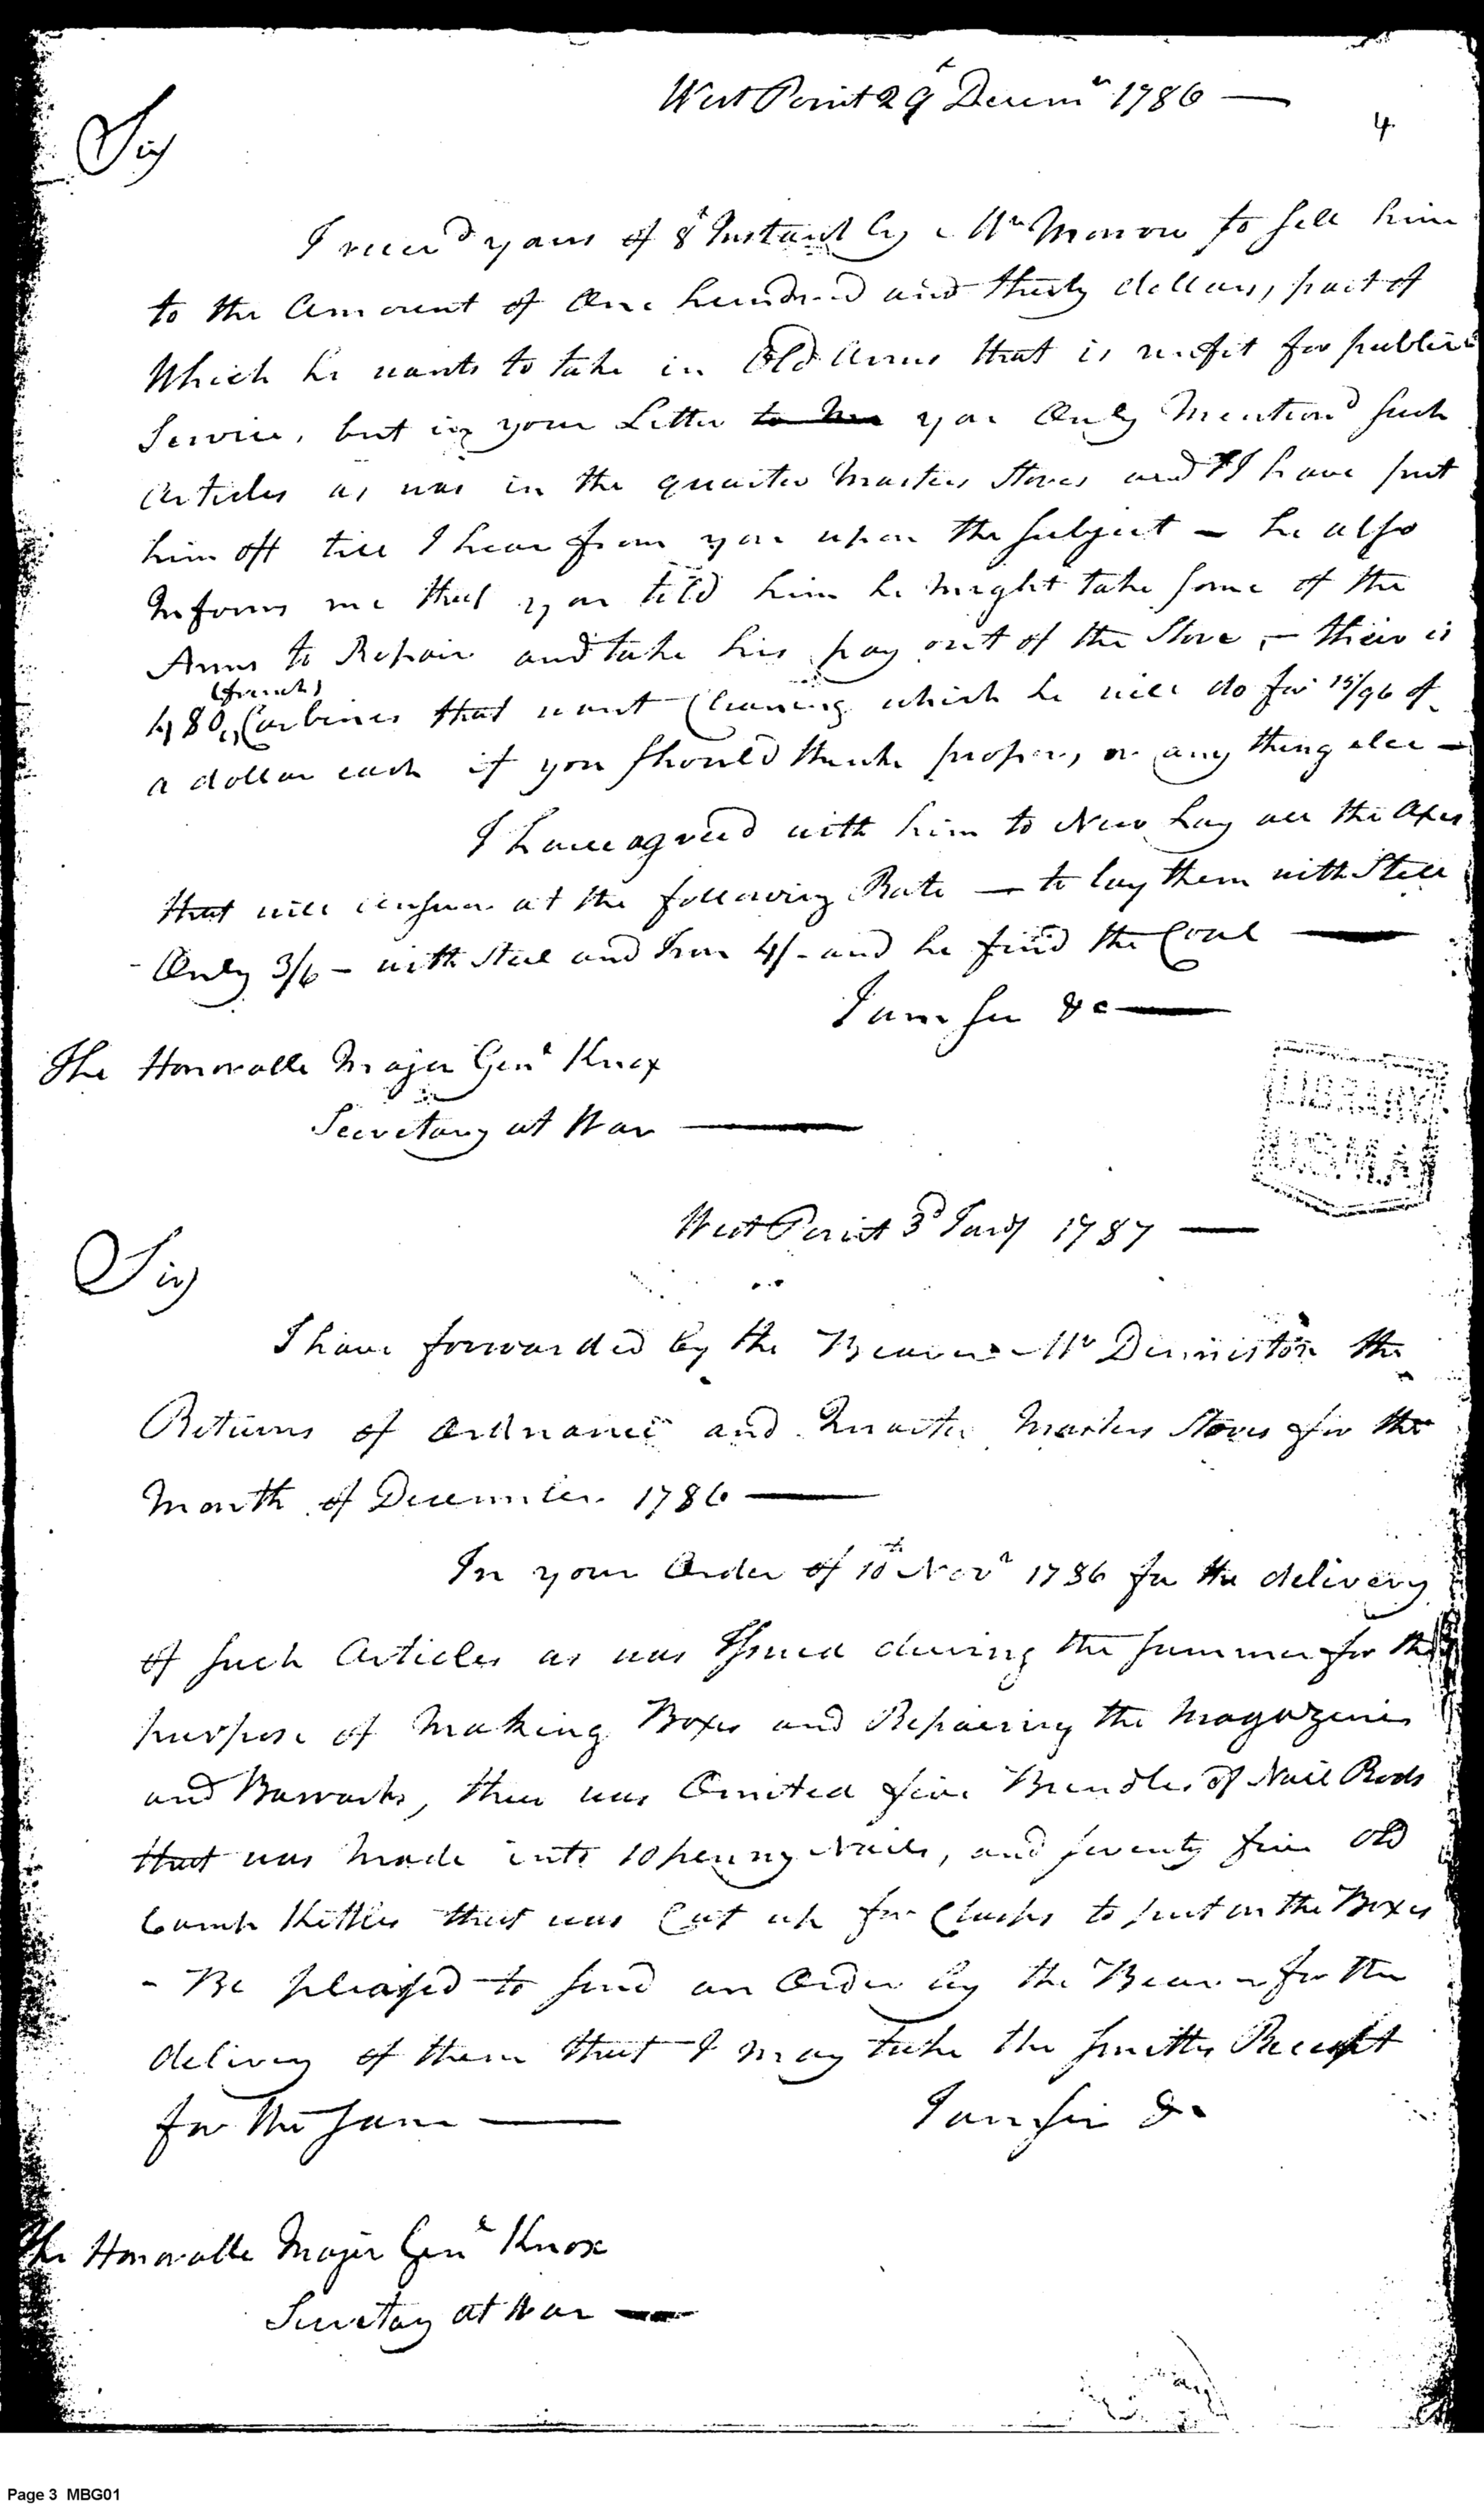 West Point 29t Decemr 1786 —
4
Sir
I receivd yours of 8t Instant by Mr Morrow to sell him
to the Amount of One hundred and thirty dollars, part of
Which he wants to take in Old Arms that is unfit for public
Service, but in your Letter to me you Only Mentiond such
Articles as was in the quarter Masters Stores and I have put
him off till I hear from you upon the subject – he also
Informs me that you told him he might take some of the
Arms to Repair and take his pay out of the Store, – their is
(french)
480 Carbines that want Cleaning which he will do for 15/96 of
a dollar each if you should think proper, or any thing else –
I have agreed with him to New Lay all the Axes
that will answer at the following Rate — to lay them with Steel
Only 3/6 – with Steel and Iron 4/- and he find the Coal —
I am Sir &c —
The Honoralle Major Genl Knox
Secretary at War —
LIBRARY
U.S.M.A.
West Point 3d Jany 1787 —
Sir
I have forwarded by the Bearer Mr Denniston the
Returns of Ordnance and Quarter Masters Stores for the
Month of December 1786 —
In your Order of 10th Novr 1786 for the delivery
of such Articles as was Issued during the summer for the
purpose of Making Boxes and Repairing the Magazines
and Barracks, thier was Omited five Bundles of Nail Rods
that was Made into 10 penny Nails, and seventy five old
Camp Kettles that was Cut up for Clasps to put on the Boxes
- Be pleased to send an Order by the Bearer for the
delivery of them that I may take the smiths Receipt
for the same —
I am sir &c
The Honoralle Major Genl Knox
Secretary at War —
Page 3 MBG01